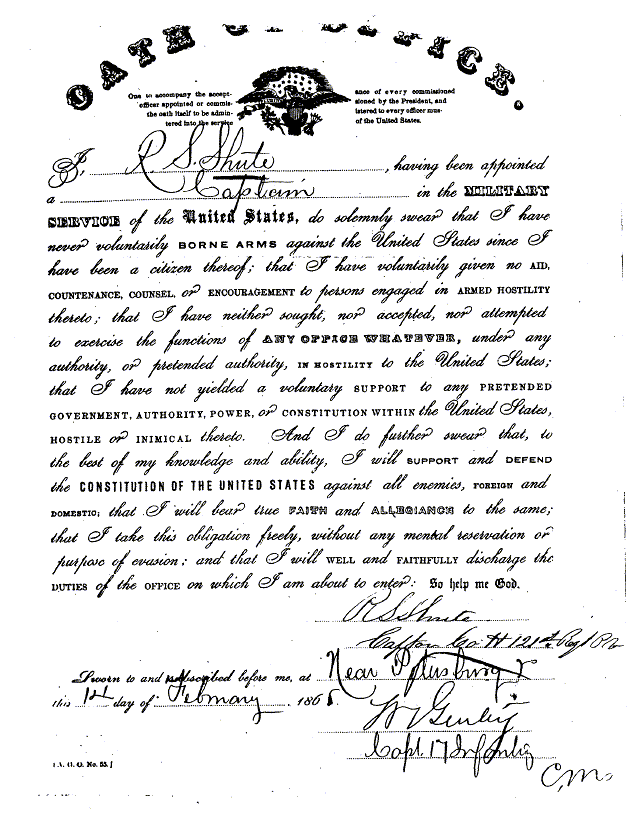 OATH OF OFFICE.
One to accompany the acceptance of every commissioned
officer appointed or commissioned by the President, and
the oath itself to be administered to every officer mus-
tered into the service of the United States.
I, R. S. Shute, having been appointed
a Captain in the MILITARY
SERVICE of the United States, do solemnly swear that I have
never voluntarily BORNE ARMS against the United States since I
have been a citizen thereof; that I have voluntarily given no AID,
COUNTENANCE, COUNSEL, or ENCOURAGEMENT to persons engaged in ARMED HOSTILITY
thereto; that I have neither sought, nor accepted, nor attempted
to exercise the functions of ANY OFFICE WHATEVER, under any
authority, or pretended authority, IN HOSTILITY to the United States;
that I have not yielded a voluntary SUPPORT to any PRETENDED
GOVERNMENT, AUTHORITY, POWER, or CONSTITUTION WITHIN the United States,
HOSTILE or INIMICAL thereto. And I do further swear that, to
the best of my knowledge and ability, I will SUPPORT and DEFEND
the CONSTITUTION OF THE UNITED STATES against all enemies, FOREIGN and
DOMESTIC; that I will bear true FAITH and ALLEGIANCE to the same;
that I take this obligation freely, without any mental reservation or
purpose of evasion; and that I will WELL and FAITHFULLY discharge the
DUTIES of the OFFICE on which I am about to enter: So help me God.
R S Shute
Co H 121st Regt
Sworn to and subscribed before me, at Near Petersburg
this 1st day of February 1865.
Capt 17 Infantry
C.M.
[A. G. O. No. 55.]